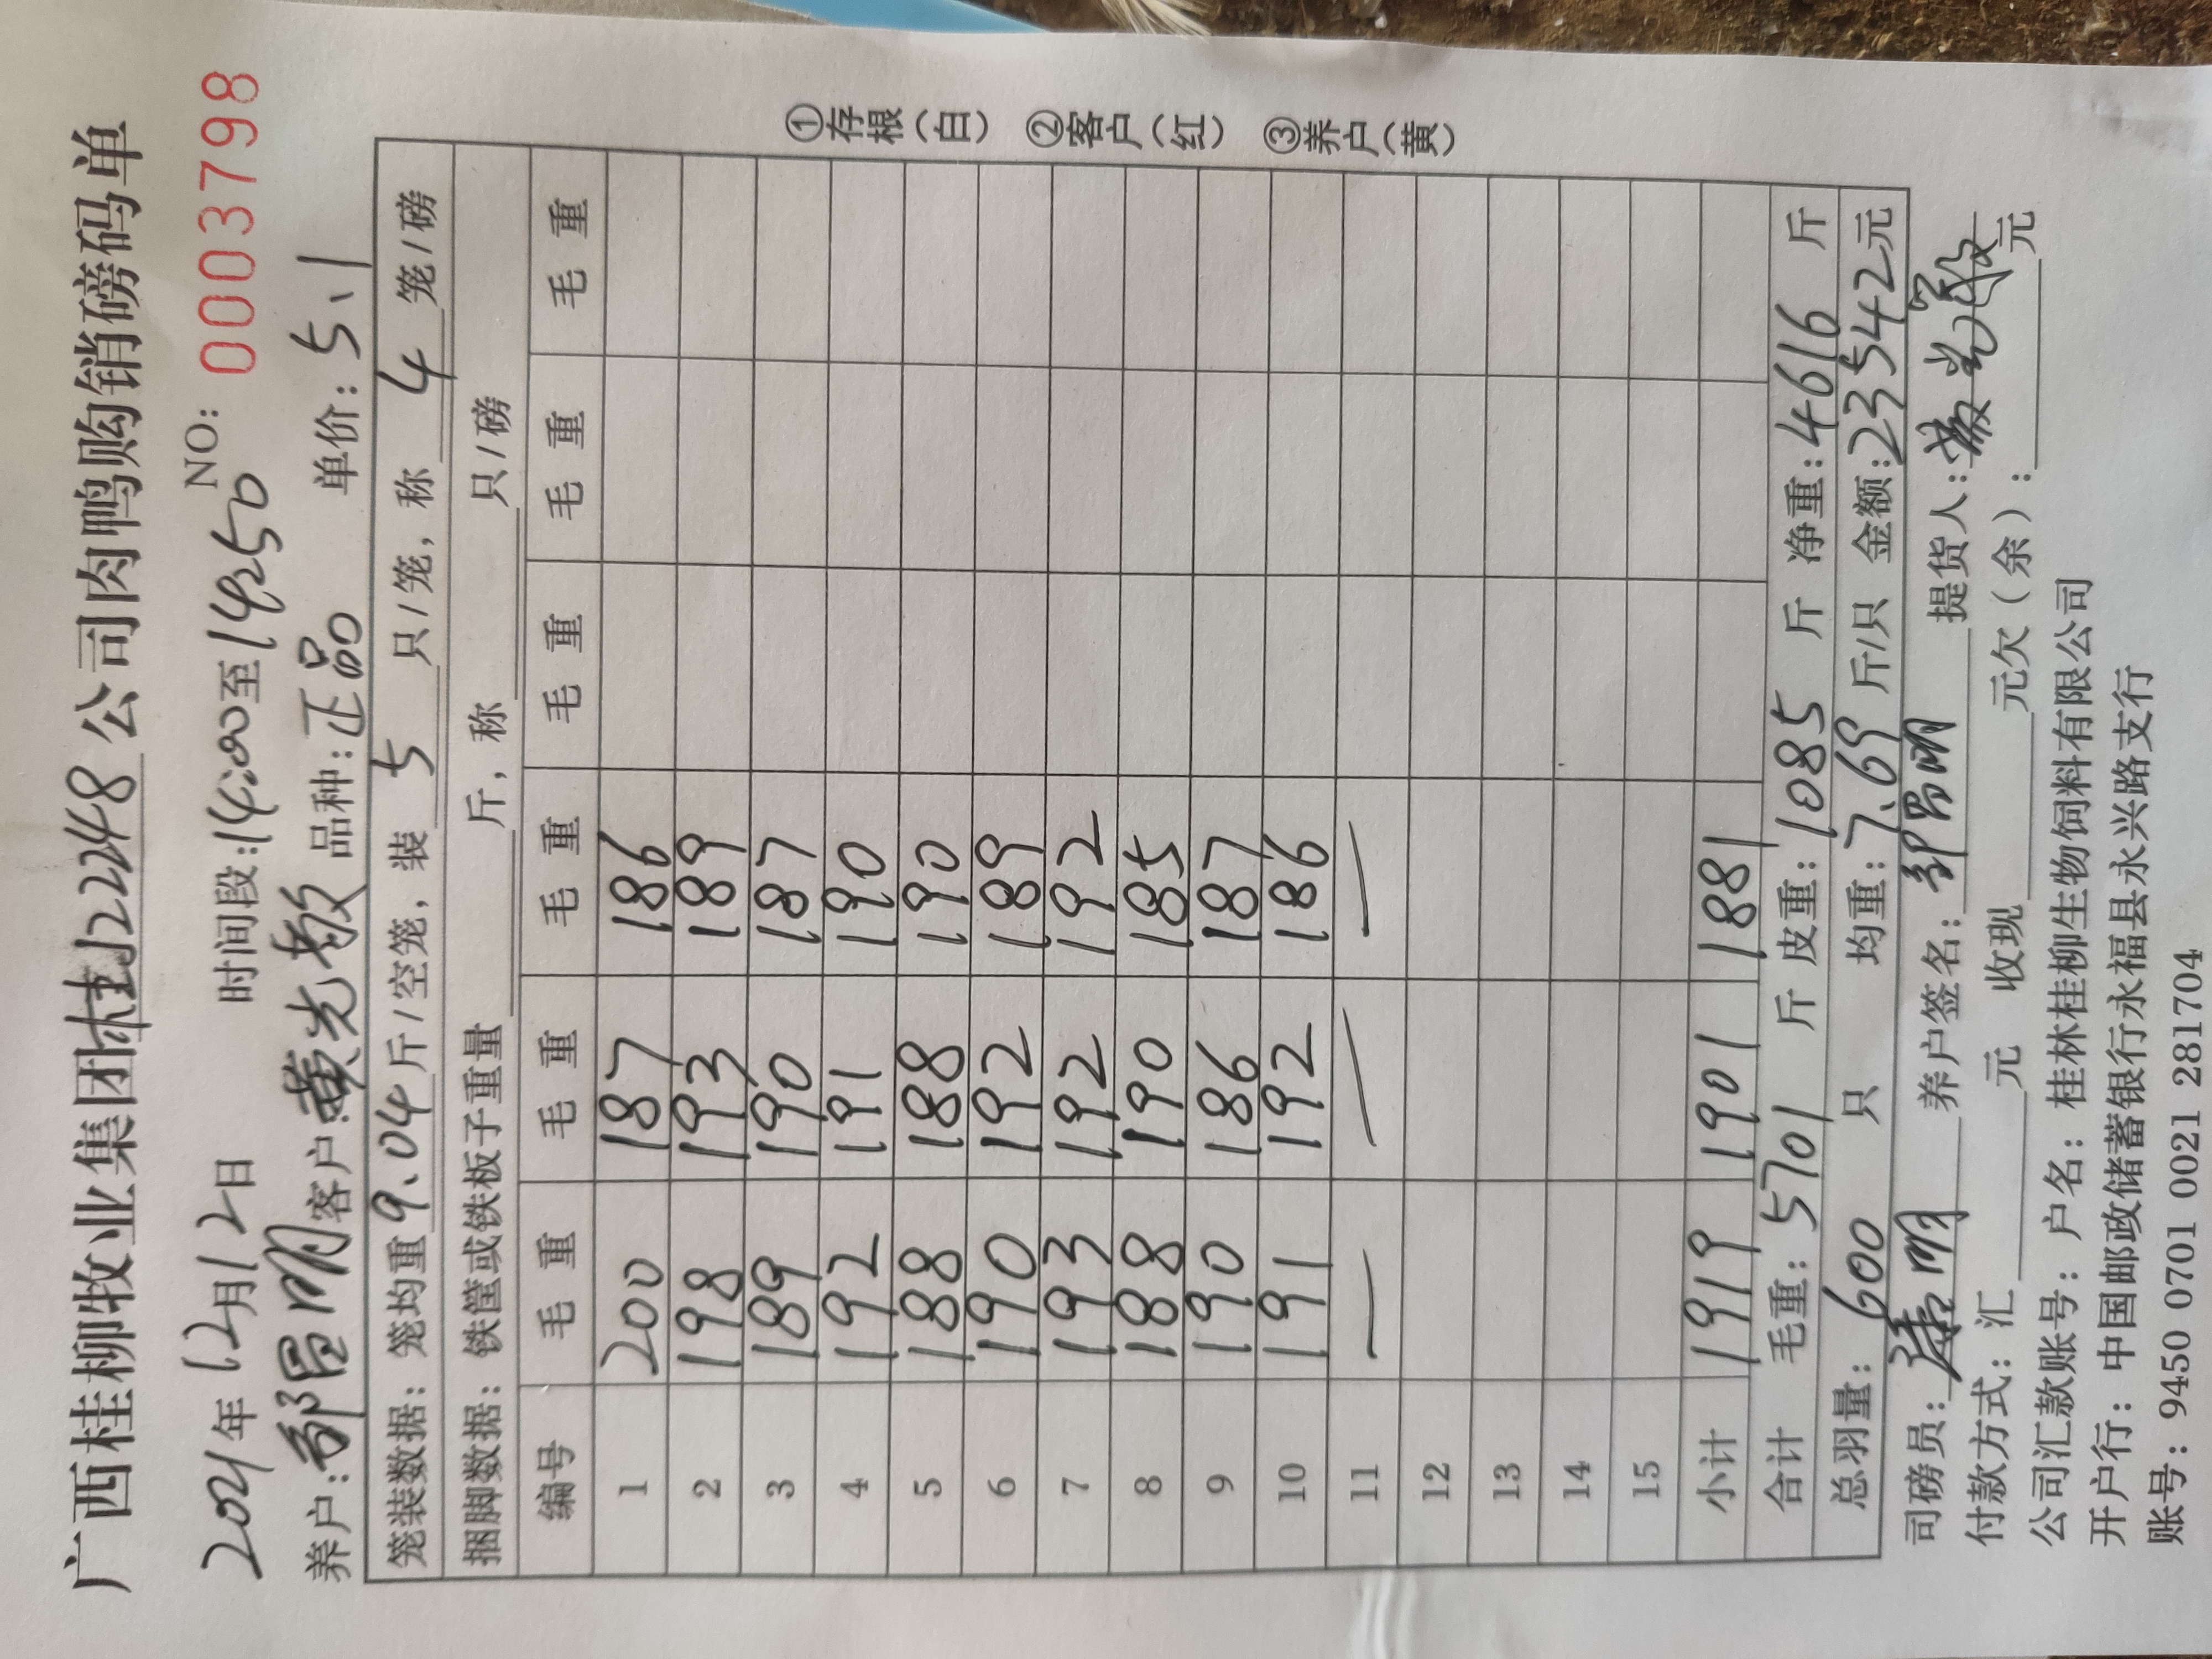 广西桂柳牧业集团桂J2248公司肉鸭购销磅码单
2021年12月12日 时间段:14:00至14:50 NO: 0003798
养户:邹昌明 客户:黄光敏 品种:正品 单价:5.1
笼装数据: 笼均重9.04斤/空笼,装 5 只/笼,称 4 笼/磅
捆脚数据: 铁筐或铁板子重量 斤,称 只/磅
编号 毛重 毛重 毛重 毛重 毛重 毛重
1 200 187 186
2 198 193 189
3 189 190 187
4 192 191 190
5 188 188 190
6 190 192 189
7 193 192 192
8 188 190 185
9 190 186 187
10 191 192 186
11 — — —
12
13
14
15
小计 1919 1901 1881
合计 毛重: 5701 斤 皮重: 1085 斤 净重: 4616 斤
总羽量: 600 只 均重: 7.69 斤/只 金额: 23542元
司磅员: 养户签名: 邹昌明 提货人: 黄光敏
付款方式: 汇 元 收现 元欠(余): 元
公司汇款账号: 户名: 桂林桂柳生物饲料有限公司
开户行: 中国邮政储蓄银行永福县永兴路支行
账号: 9450 0701 0021 281704
①存根(白) ②客户(红) ③养户(黄)